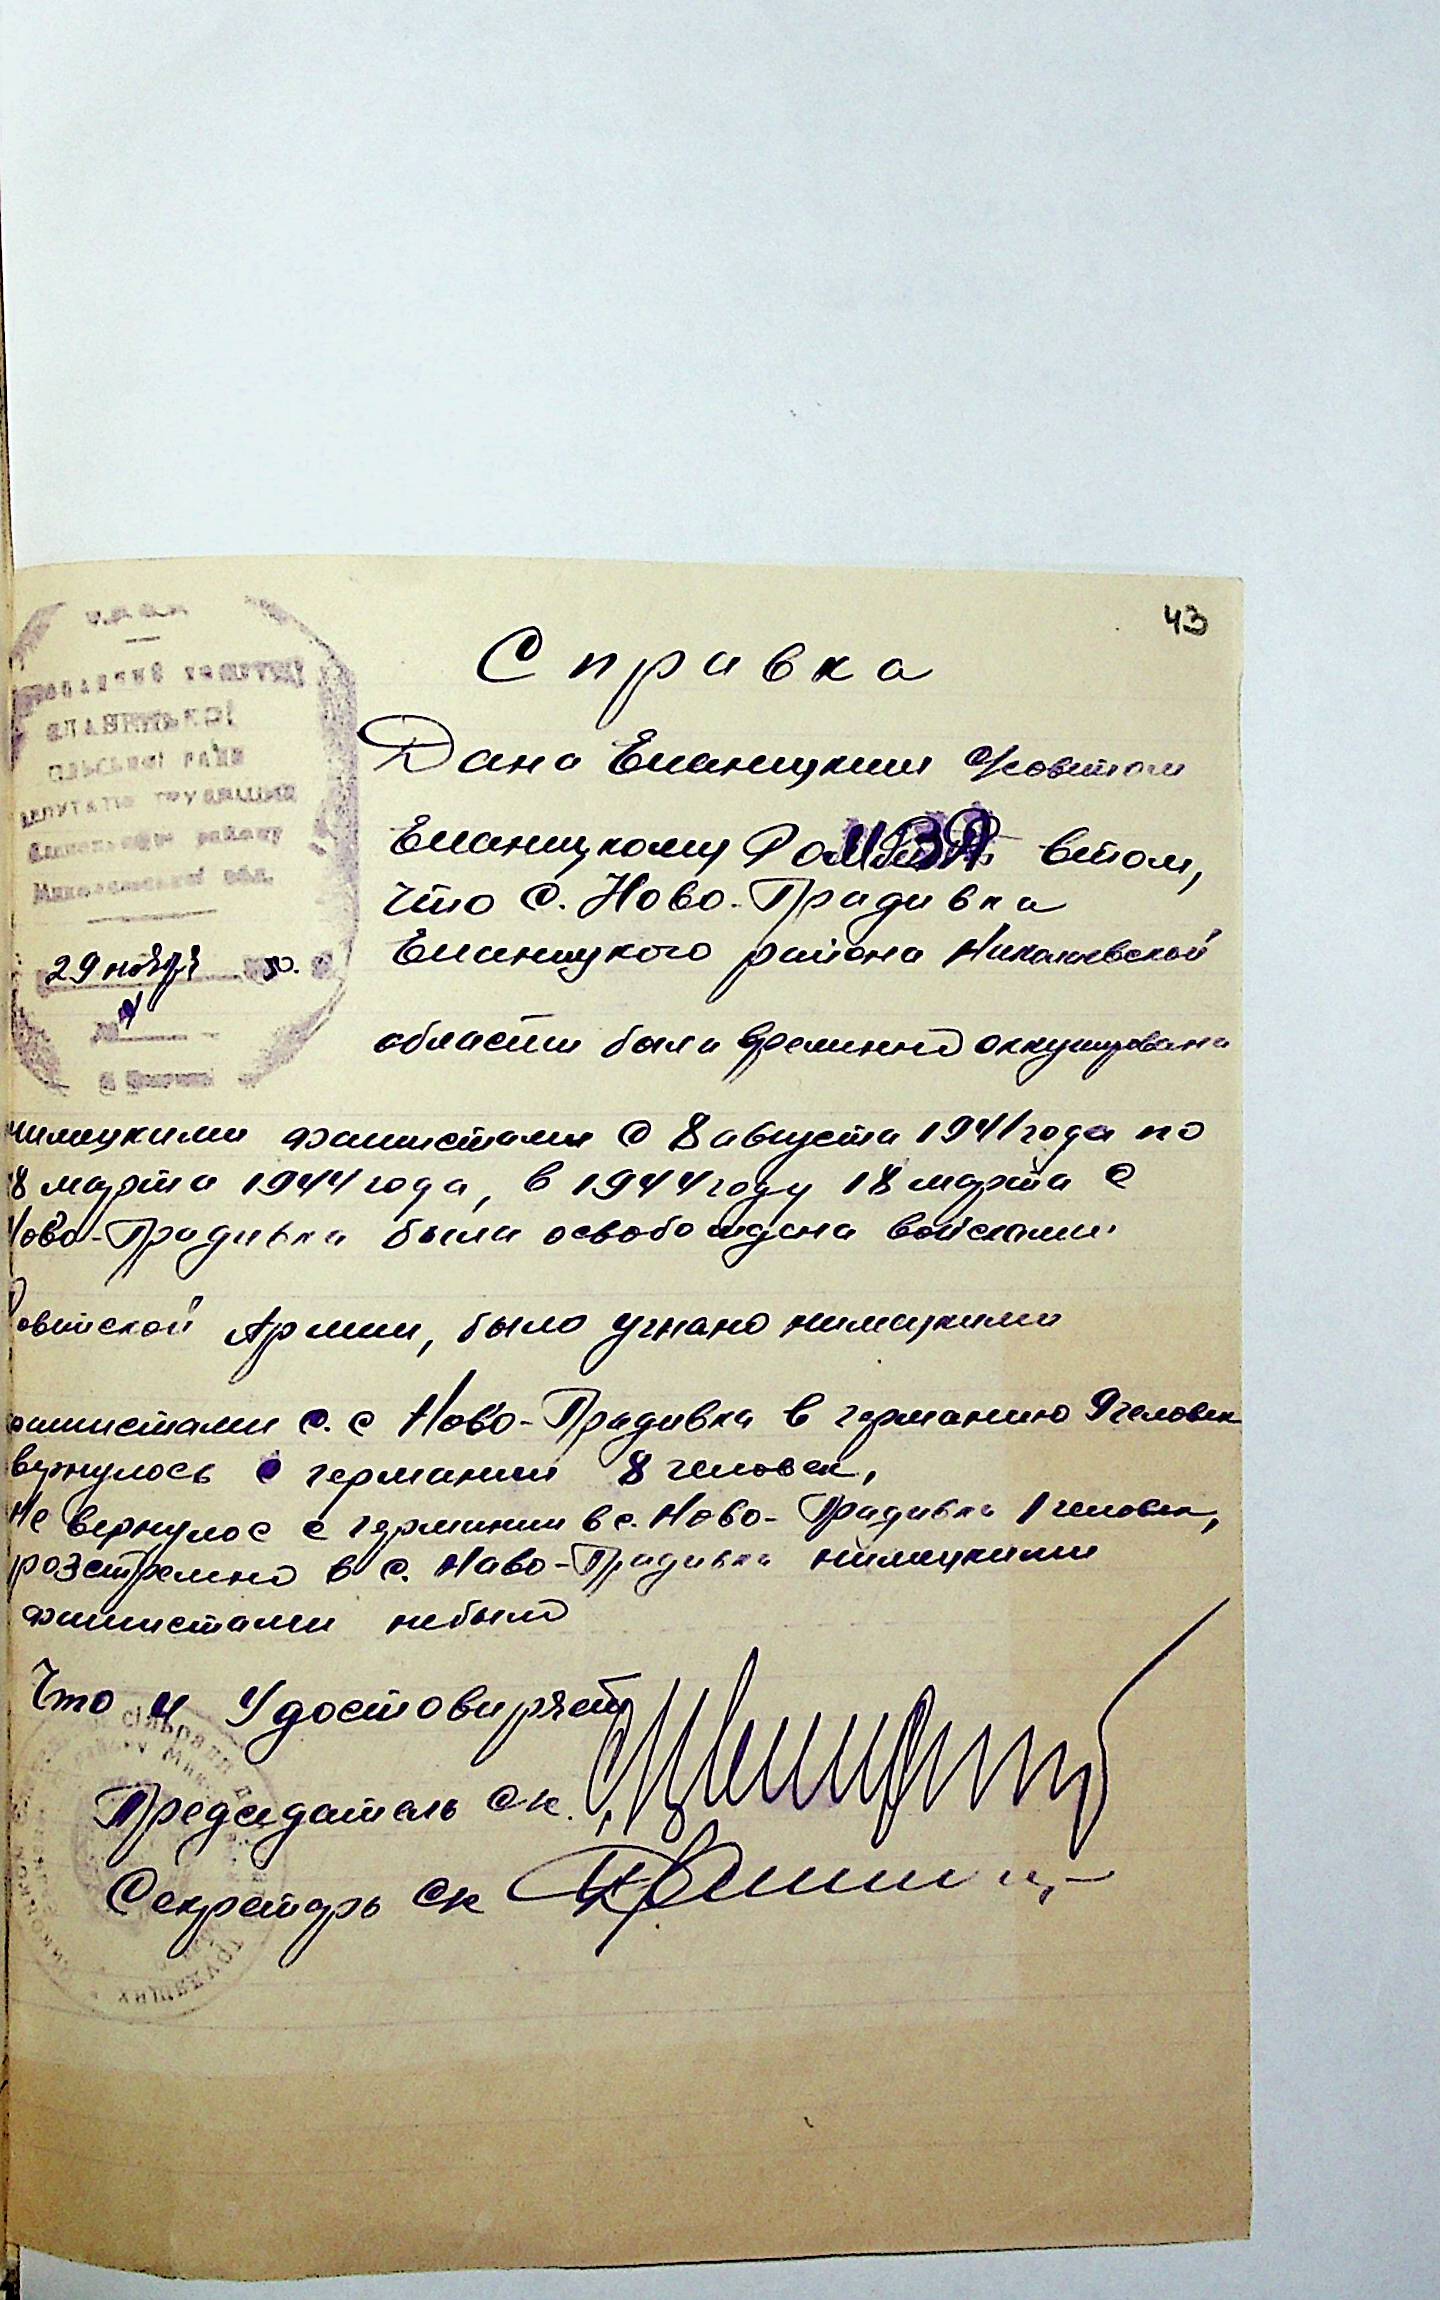 43
Справка
Дана Еланецким Советом
Еланецкому РОМВД втом,
что с. Ново-Прадивка
Еланецкого района Николаевской
29 ноября 50.
области была временно оккупирована
нимецкими фашистами с 8 августа 1941 года по
18 марта 1944 года, в 1944 году 18 марта с
Ново-Прадивка была освобождена войсками
Советской Армии, было угнано нимецкими
фашистами с. с Ново-Прадивка в германию 9 человек
вернулось с германии 8 человек,
Не вернулос с германии в с. Ново-Прадивка 1 человек,
розстрелено в с. Ново-Прадивка нимецкими
фашистами небыло
Что и Удостовиряет
Председатель ск.
Секретарь ск